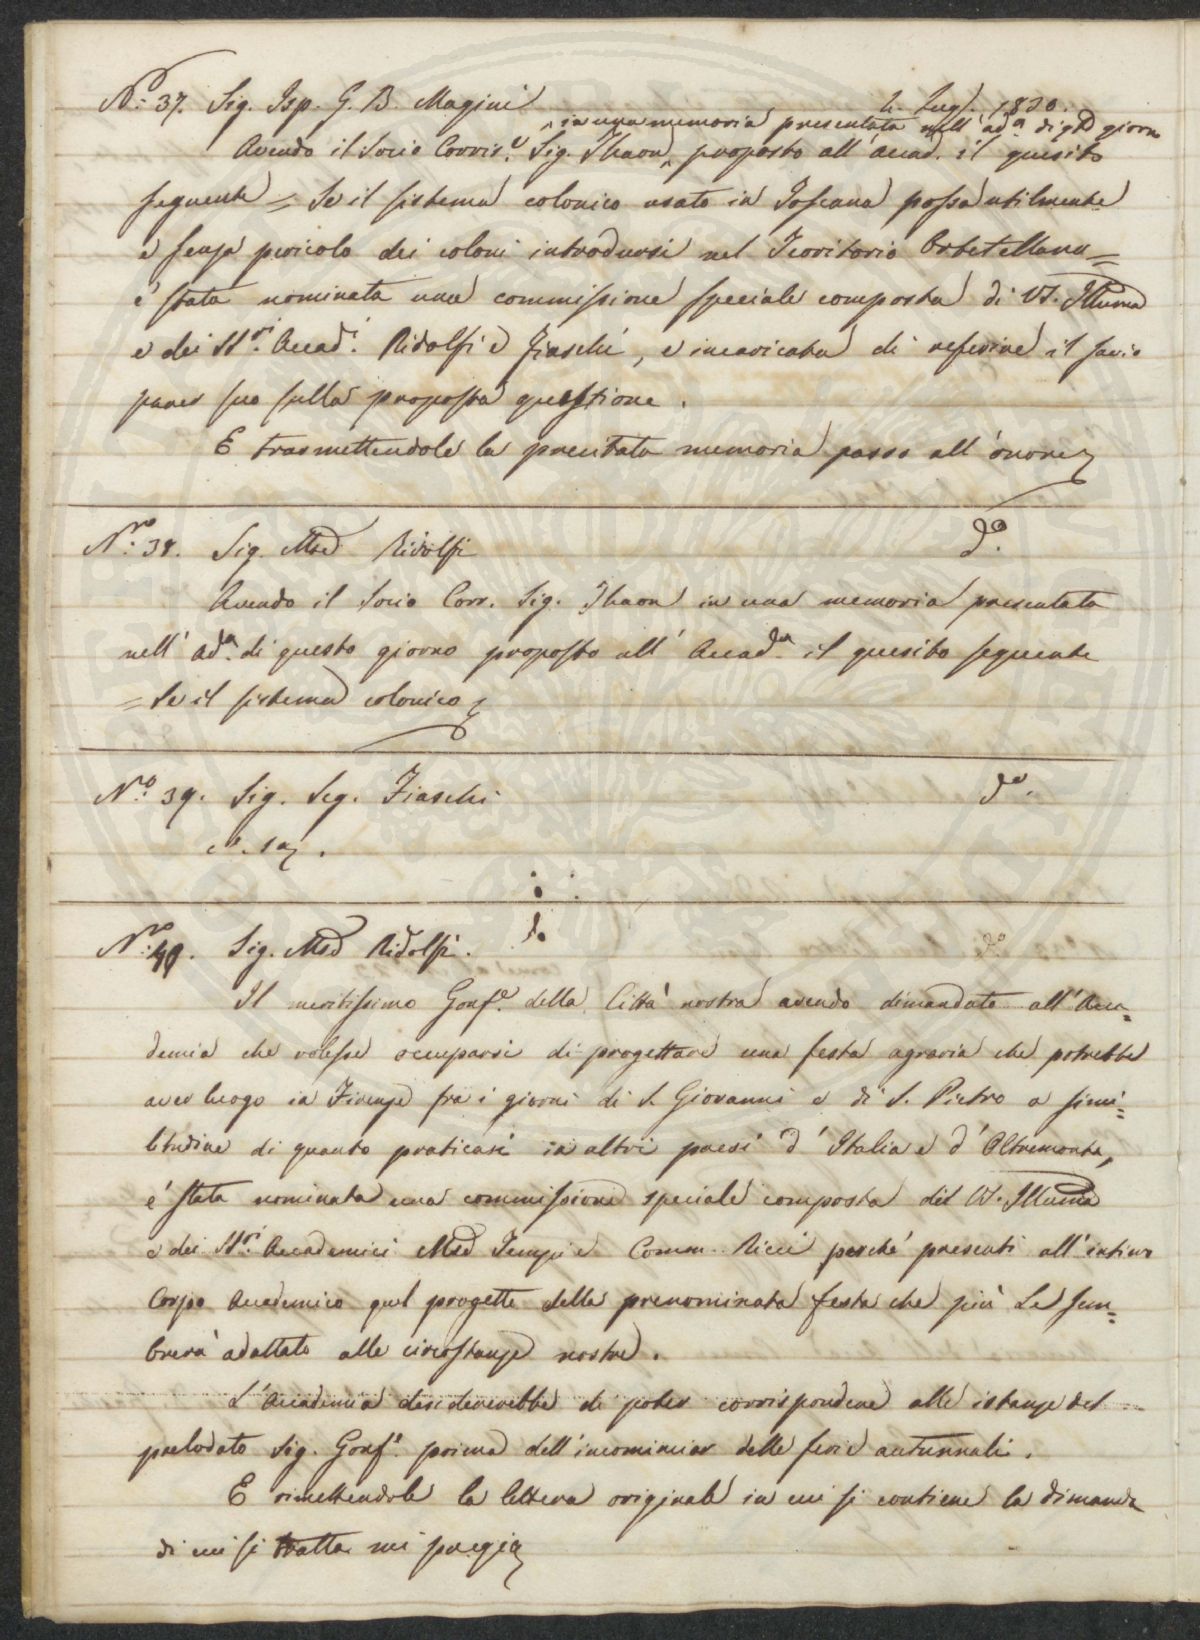 N.º 37. Sig. Isp. G. B. Magini 4. Lugl. 1830.
in una memoria presentata nell' ad.ª di q.to giorno
Avendo il Socio Corrisp.e Sig. Thaon proposto all' Accad. il quesito
seguente = Se il sistema colonico usato in Toscana possa utilmente
e senza pericolo dei coloni introdursi nel Territorio Orbetellano =
é stata nominata una commissione speciale composta di VS. Illma
e dei SS.ri Accad.i Ridolfi e Fiaschi, e incaricata di referire il savio
parer suo sulla proposta questione.
E trasmettendole la precitata memoria passo all' onore
N.ro 38. Sig. Mse Ridolfi d.º
Avendo il Socio Corr. Sig. Thaon in una memoria presentata
nell' ad.ª di questo giorno proposto all' Accad.ª il quesito seguente
= Se il sistema colonico
N.ro 39. Sig. Seg. Fiaschi d.º
N.ro 40. Sig. Mse Ridolfi. d.º
Il meritissimo Gonf.e della Città nostra avendo dimandato all' Acca=
demia che volesse occuparsi di progettare una festa agraria che potrebbe
aver luogo in Firenze fra i giorni di S. Giovanni e di S. Pietro a simi=
litudine di quanto praticasi in altri paesi d' Italia e d' Oltremonte,
é stata nominata una commissione speciale composta del VS. Illuma
e dei SS.ri Accademici Mse Tempi e Comm. Ricci perché presenti all' intiero
Corpo Accademico quel progetto della prenominata festa che più Le sem=
brerà adattato alle circostanze nostre.
L'Accademia desidererebbe di poter corrispondere alle istanze del
prelodato Sig. Gonf.e prima dell' incominciar delle ferie autunnali.
E rimettendole la lettera originale in cui si contiene la dimanda
di cui si tratta mi pregio